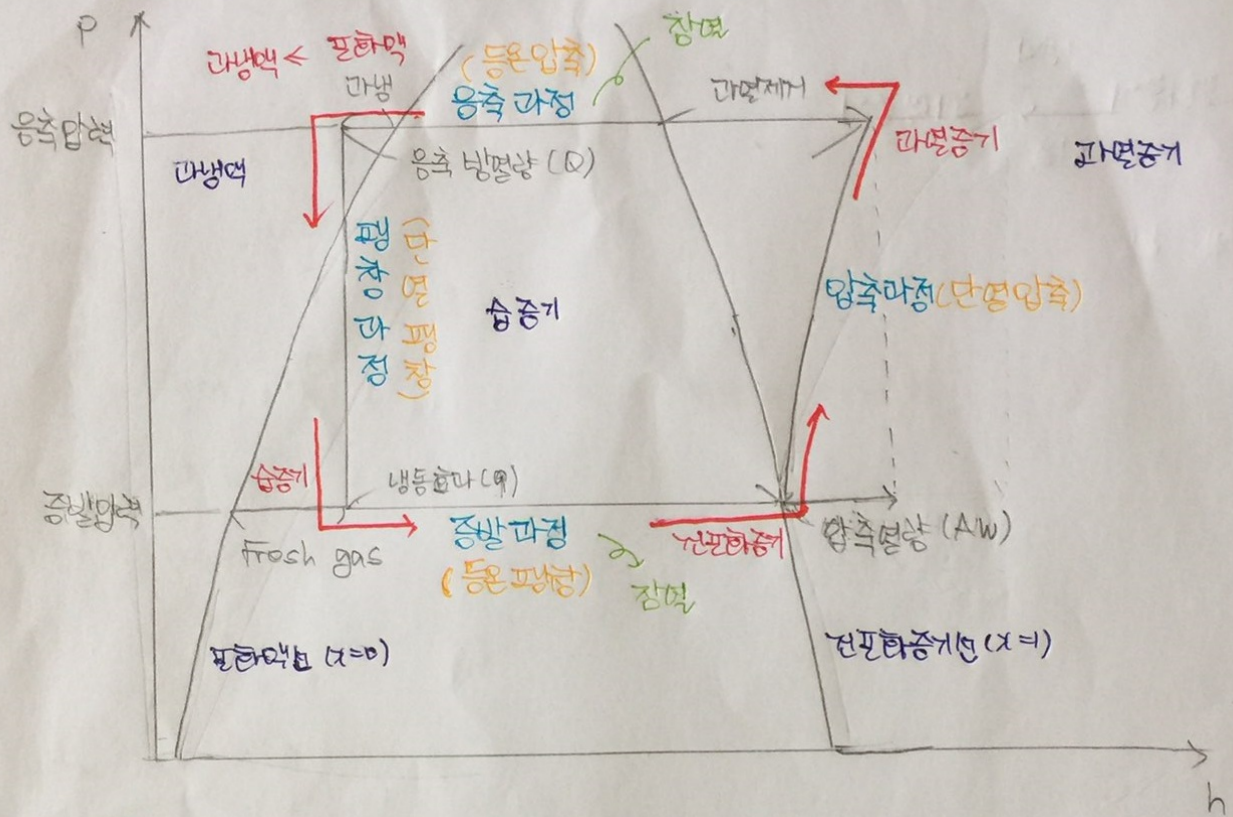 P
과냉액 < 포화액
과냉
(등온압축)
응축 과정
잠열
과열제거
응축압력
과냉액
응축 방열량 (Q)
과열증기
과열증기
팽창과정
(단열팽창)
습증기
압축과정(단열압축)
습증기
냉동효과(q)
증발압력
Fresh gas
증발과정
(등온팽창)
잠열
건포화증기
압축열량 (Aw)
포화액선 (x=0)
건포화증기선 (x=1)
h